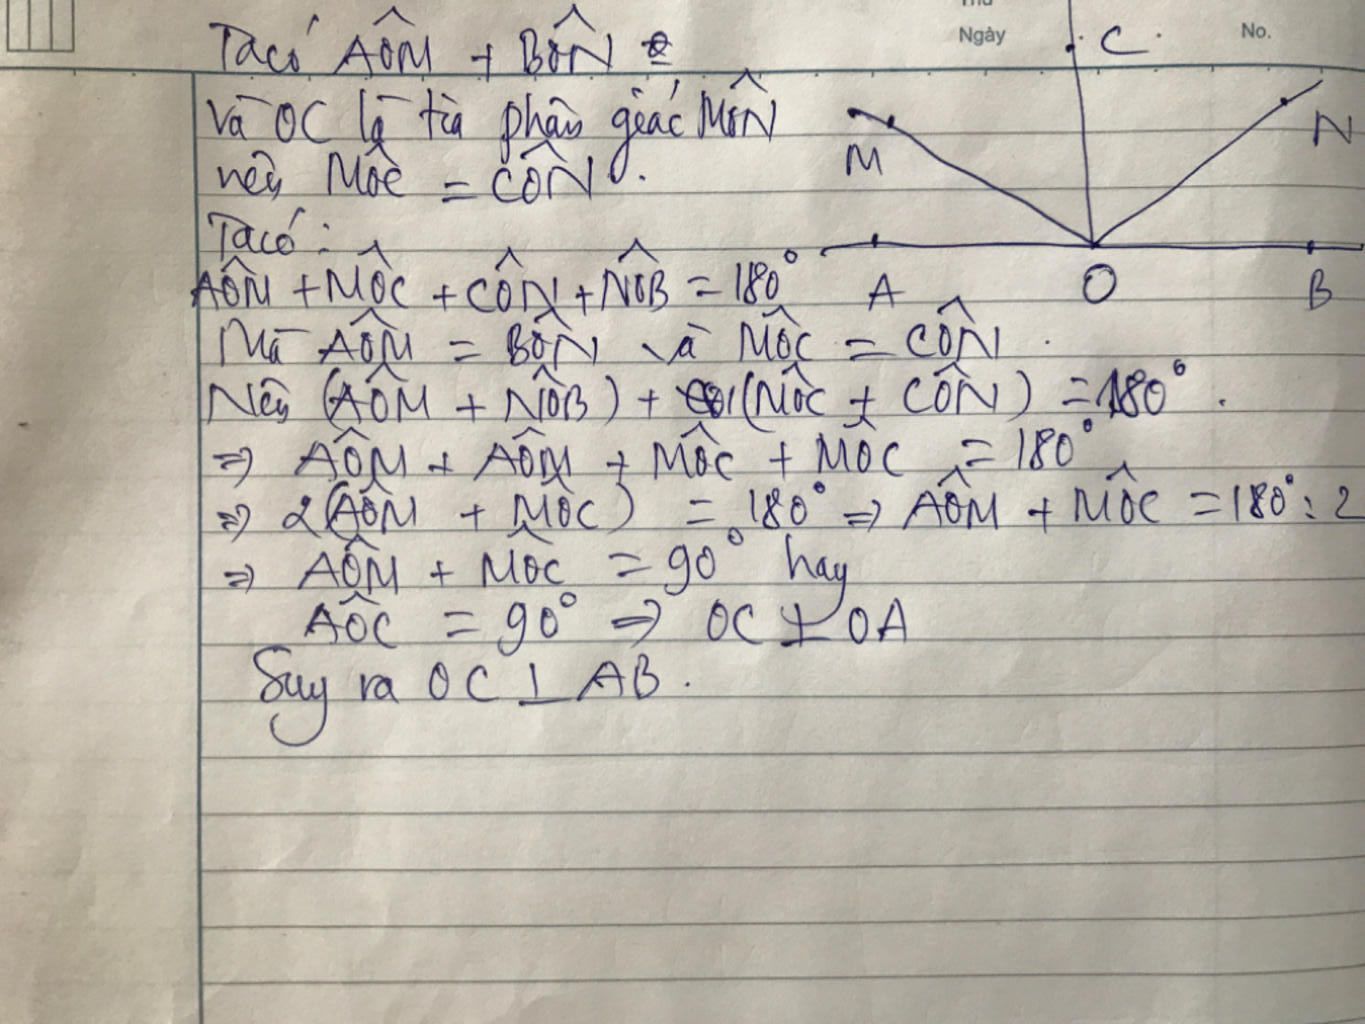 Thứ
Ngày
No.
Ta có AÔM + BÔN
Và OC là tia phân giác MÔN
nên MÔC = CÔN.
Ta có:
AÔM + MÔC + CÔN + NÔB = 180°
Mà AÔM = BÔN và MÔC = CÔN.
Nên (AÔM + NÔB) + (MÔC + CÔN) = 180°.
=> AÔM + AÔM + MÔC + MÔC = 180°
=> 2(AÔM + MÔC) = 180° => AÔM + MÔC = 180° : 2
=> AÔM + MÔC = 90° hay
AÔC = 90° => OC ⊥ OA
Suy ra OC ⊥ AB.
C
M
N
A
O
B